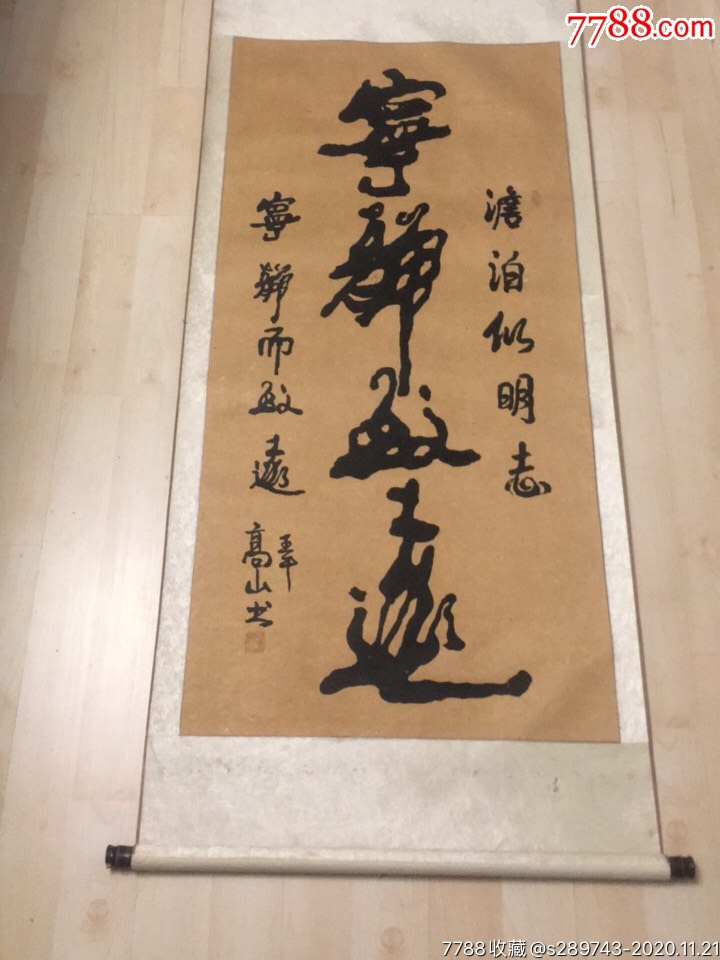 7788.com
澹泊以明志
寧靜致遠
寧靜而致遠
高山书
7788收藏@s289743-2020.11.21